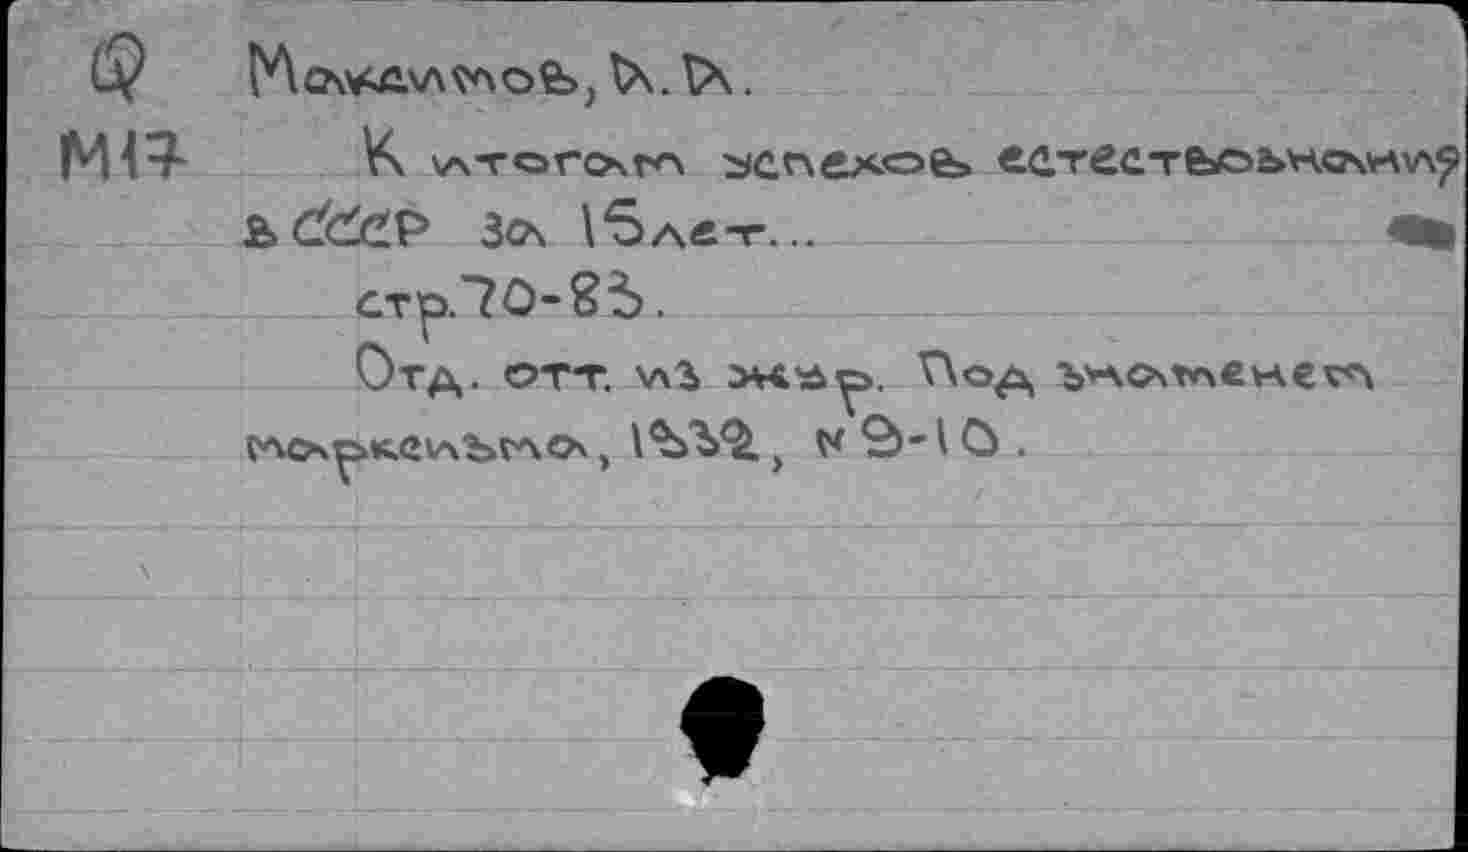 Q Максимов, А. А.
М17 К итогам успехов естествознания
в СССР За 15 лет...
стр. 70-83.
Отд. отт. из жур. Под знаменем
марксизма, 1932, № 9-10.